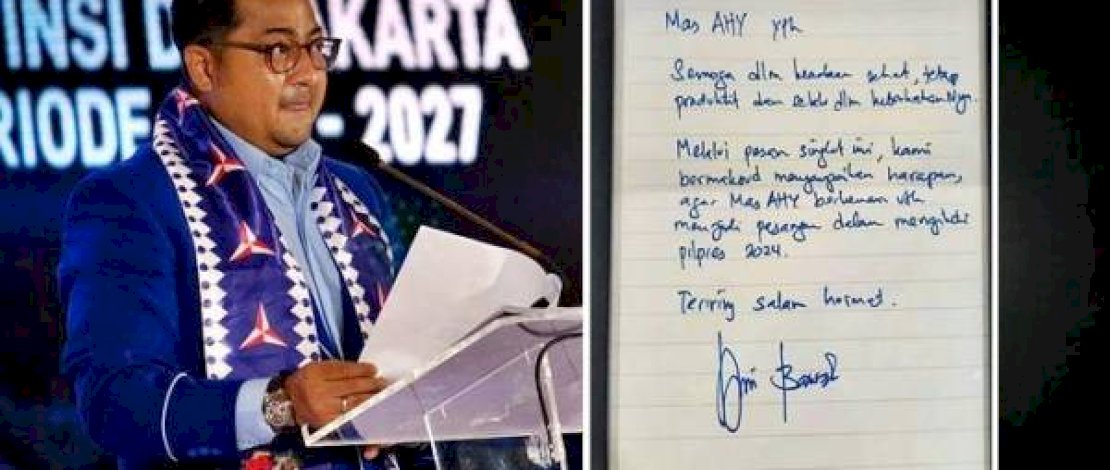 INSI D KARTA
RIODE - 2027
Mas AHY yth
Semoga dlm keadaan sehat, tetap
produktif dan selalu dlm keberkahanNya.
Melalui pesan singkat ini, kami
bermaksud menyampaikan harapan,
agar Mas AHY berkenan utk
menjadi pasangan dalam mengikuti
pilpres 2024.
Teriring salam hormat.